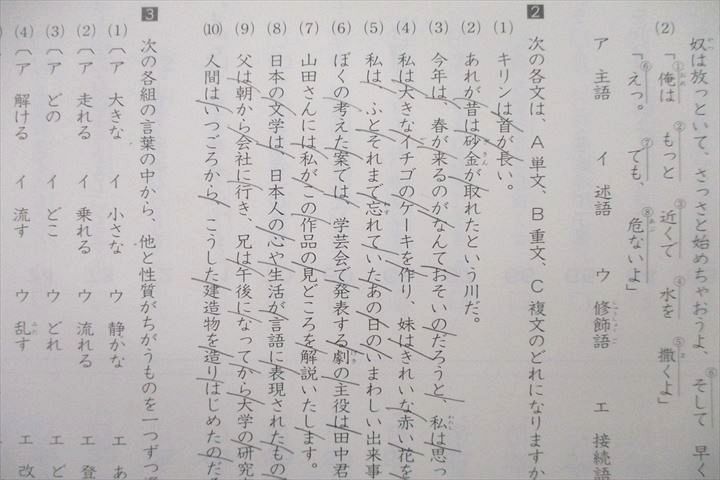 奴は放っといて、さっさと始めちゃおうよ、⑥そして 早く
(2) 「①俺は ②もっと ③近くで ④水を ⑤撒くよ」
「⑥えっ。 ⑦でも、 ⑧危ないよ」
ア 主語 イ 述語 ウ 修飾語 エ 接続語
2 次の各文は、A単文、B重文、C複文のどれになりますか
(1) キリンは首が長い。
(2) あれが昔は砂金が取れたという川だ。
(3) 今年は、春が来るのがなんておそいのだろうと、私は思っ
(4) 私は大きなイチゴのケーキを作り、妹はきれいな赤い花を
(5) 私は、ふとそれまで忘れていたあの日のいまわしい出来事
(6) ぼくの考えた案では、学芸会で発表する劇の主役は田中君
(7) 山田さんには私がこの作品の見どころを解説いたします。
(8) 日本の文学は、日本人の心や生活が言語に表現されたもの
(9) 父は朝から会社に行き、兄は午後になってから大学の研究
(10) 人間はいつごろから、こうした建造物を造りはじめたのだ
3 次の各組の言葉の中から、他と性質がちがうものを一つずつ
(1) 〔ア 大きな イ 小さな ウ 静かな エ あ
(2) 〔ア 走れる イ 乗れる ウ 流れる エ 登
(3) 〔ア どの イ どこ ウ どれ エ ど
(4) 〔ア 解ける イ 流す ウ 乱す エ 改